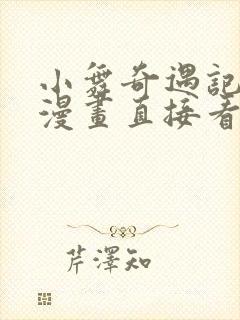 小舞奇遇記
漫畫直接看
芹澤知